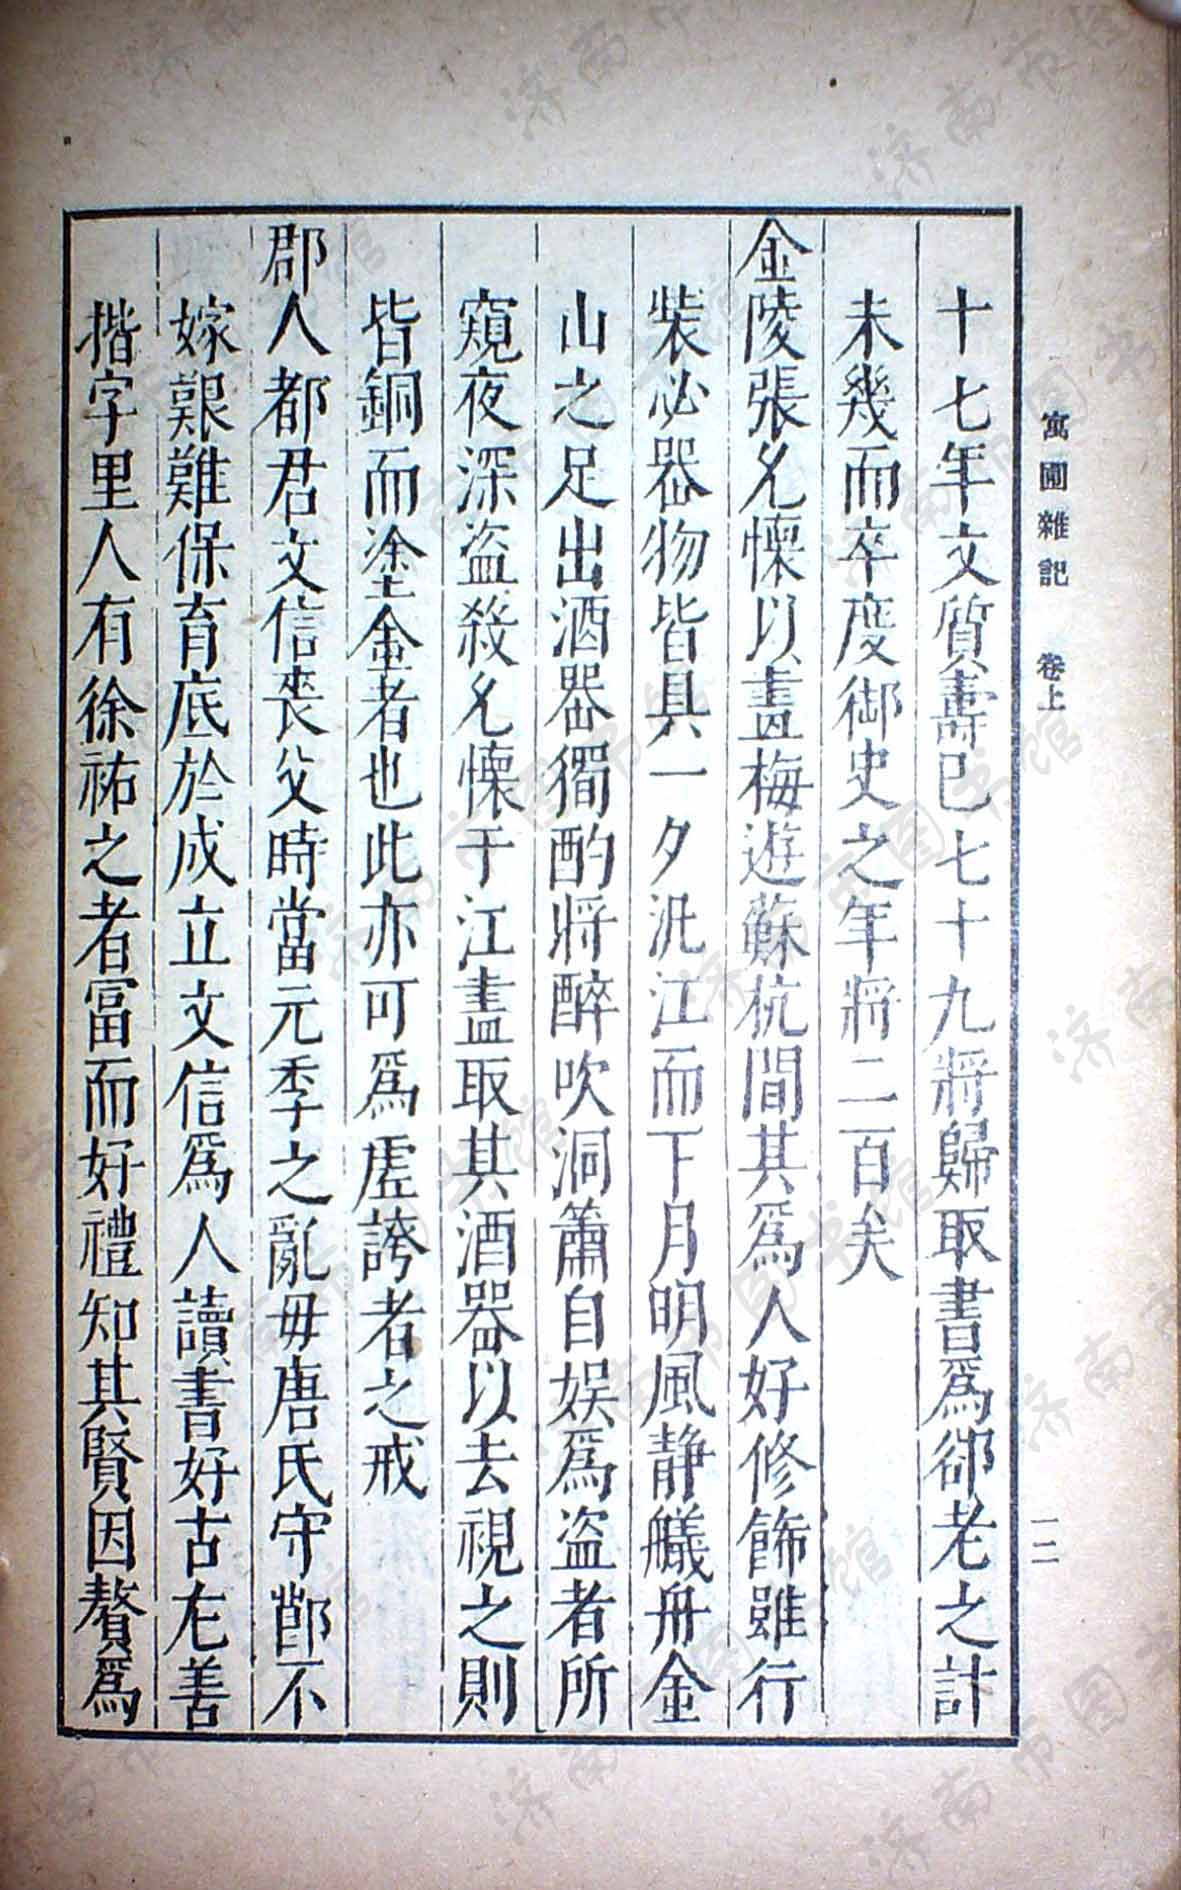 寓圃雜記　卷上　一二
十七年文質壽已七十九將歸取書爲卻老之計
未幾而卒度御史之年將二百矣
金陵張允懷以畫梅遊蘇杭間其爲人好修飾雖行
裝必器物皆具一夕汎江而下月明風静艤舟金
山之足出酒器獨酌將醉吹洞簫自娱爲盜者所
窺夜深盜殺允懷于江盡取其酒器以去視之則
皆銅而塗金者也此亦可爲虛誇者之戒
郡人都君文信喪父時當元季之亂毋唐氏守節不
嫁艱難保育底於成立文信爲人讀書好古尤善
揩字里人有徐祐之者富而好禮知其賢因贅爲